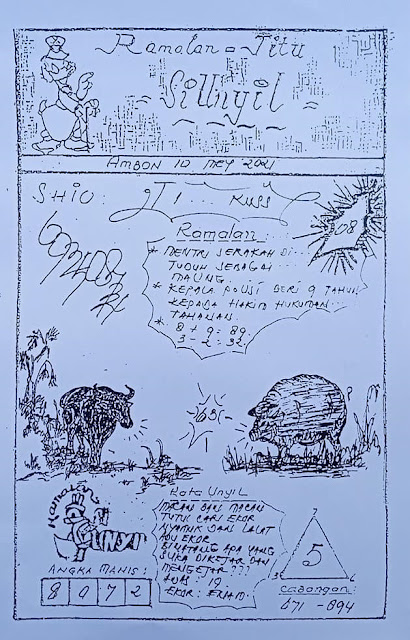 Ramalan = Jitu
Si Unyil
AMBON 10 MEY 2021
SHIO:
KUSS
08
Ramalan:
* MENTRI SERAKAH DI...
TUDUH SEBAGAI...
MALING
* KEPALA POLISI BERI 9 TAHUN
KEPADA HAKIM HUKUMAN...
TAHANAN
* 8 + 9 = 89
3 - 2 = 32
Kata Unyil
MACAN DARI MACAN
TUTUL CARI EKOR
NYAMUK DARI LALAT
ADU EKOR
BINATANG APA YANG
SUKA DIKEJAR DAN
MENGEJAR ???
19
EKOR: ENAM
Ramalan
UNYIL
ANGKA MANIS:
8 0 7 2
7
5
3 6
CADANGAN:
671 - 894